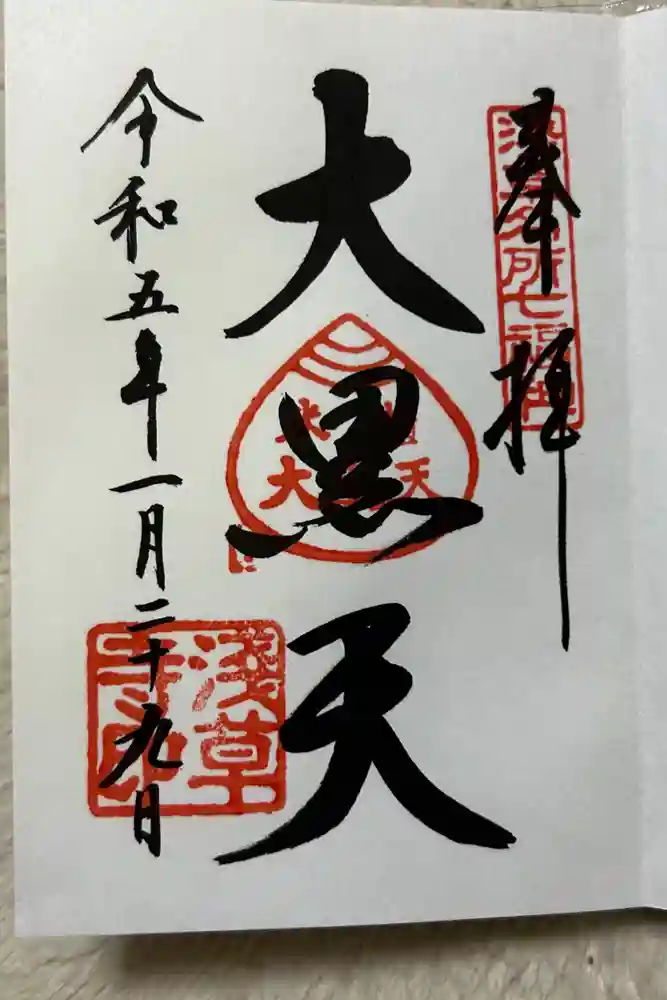 奉拝
浅草名所七福神
大黒天
大 天
令和五年一月二十九日
浅草
寺印